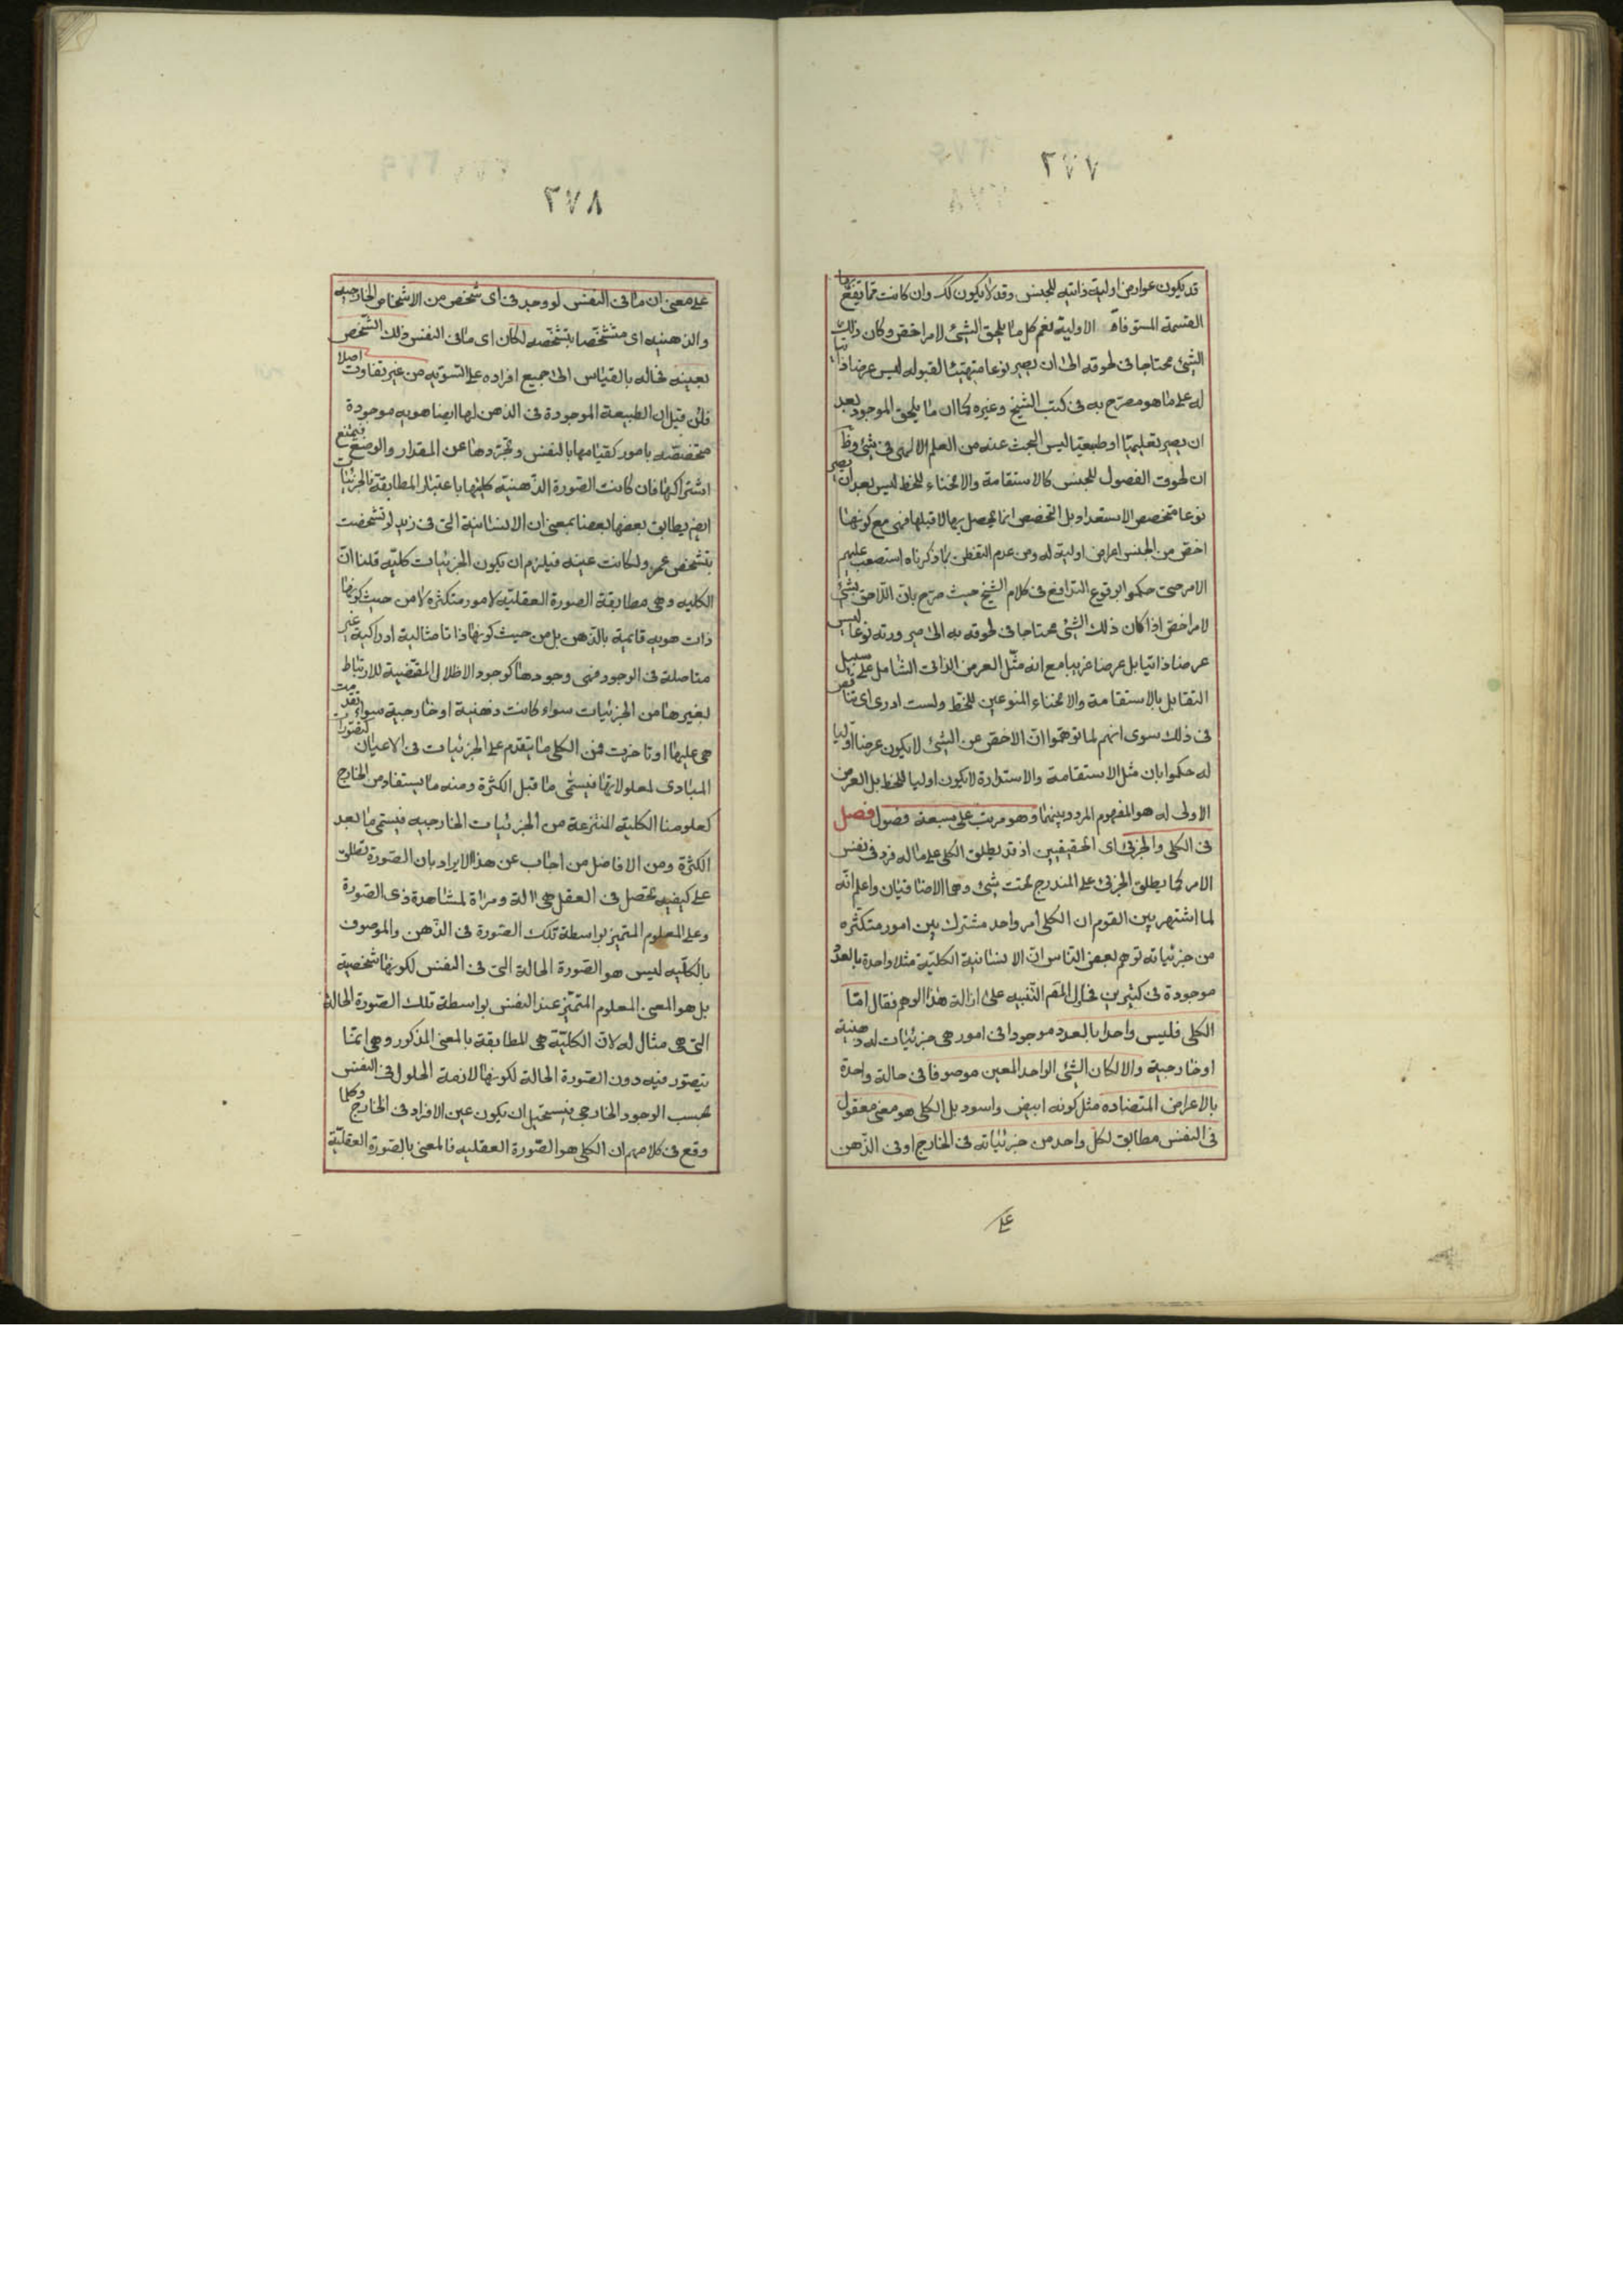 ٢٧٧
قد يكون عوارض اولية ذاتية للجنس وقد لا يكون كك وان كانت مما يقع بها
القسمة المستوفاة الاولية نعم كل ما يلحق الشئ لامر اخص وكان ذلك
الشئ محتاجا فى لحوقه الى ان يصير نوعا متهيئا لقبوله ليس عرضا ذاتيا
له على ما هو مصرح به فى كتب الشيخ وغيره كما ان ما يلحق الموجود بعد
ان يصير تعليميا او طبيعيا ليس البحث عنه من العلم الالهى فى شئ وظ
ان لحوق الفصول للجنس كالاستقامة والانحناء للخط ليس بعد ان يصير
نوعا متخصص الاستعداد بل التخصص انما يحصل بها لا قبلها فهى مع كونها
اخص من الجنس اعراض اولية له ومن عدم التفطن بما ذكرناه استصعب عليهم
الامر حتى حكموا بوقوع التدافع فى كلام الشيخ حيث صرح بان اللاحق بشئ
لامر اخص اذا كان ذلك الشئ محتاجا فى لحوقه به الى صيرورته نوعا ليس
عرضا ذاتيا بل عرضا غريبا مع انه مثل العرض الذاتى الشامل على سبيل
التقابل بالاستقامة والانحناء المنوعين للخط ولست ادرى اى تناقض
فى ذلك سوى انهم لما توهموا ان الاخص عن الشئ لا يكون عرضا اوليا
له حكموا بان مثل الاستقامة والاستدارة لا يكون اوليا للخط بل العرض
الاولى له هو المفهوم المردد بينهما وهو مرتب على سبعة فصول فصل
فى الكلى والجزئى اى الحقيقيين اذ قد يطلق الكلى على ما له فرد فى نفس
الامر كما يطلق الجزئى على المندرج تحت شئ وهما الاضافيان واعلم انه
لما اشتهر بين القوم ان الكلى امر واحد مشترك بين امور متكثره
من جزئياته توهم بعض الناس ان الانسانية الكلية مثلا واحدة بالعدد
موجودة فى كثيرين فحاول المص التنبيه على ازالة هذا الوهم فقال اما
الكلى فليس واحدا بالعدد موجودا فى امور هى جزئيات له ذهنية
او خارجية والا لكان الشئ الواحد المعين موصوفا فى حالة واحدة
بالاعراض المتضاده مثل كونه ابيض واسود بل الكلى هو معنى معقول
فى النفس مطابق لكل واحد من جزئياته فى الخارج او فى الذهن
على
٢٧٨
على معنى ان ما فى النفس لو وجد فى اى شخص من الاشخاص الخارجيه
والذهنيه اى متشخصا بتشخصه لكان اى ما فى النفس ذلك الشخص
بعينه فحاله بالقياس الى جميع افراده على التسويه من غير تفاوت اصلا
فان قيل ان الطبيعة الموجودة فى الذهن لها ايضا هويه موجودة
متخصصه بامور كقيامها بالنفس وتجردها عن المقدار والوضع فيمتنع
اشتراكها فان كانت الصورة الذهنية كليتها باعتبار المطابقة فالجزئيات
ايضم يطابق بعضها بعضا بمعنى ان الانسانية التى فى زيد لو تشخصت
بتشخص عمرو لكانت عينه فيلزم ان يكون الجزئيات كلية قلنا ان
الكليه وهى مطابقة الصورة العقليه لامور متكثرة لا من حيث كونها
ذات هويه قائمية بالذهن بل من حيث كونها ذاتا مثالية ادراكية غير
متاصلة فى الوجود فهى وجودها كوجود الاظلال المقتضية للارتباط
بغيرها من الجزئيات سواء كانت ذهنية او خارجية سواء تقدمت
هى عليها او تاخرت فمن الكلى ما يتقدم على الجزئيات فى الاعيان كتصورات
المبادى لمعلولاتها فيسمى ما قبل الكثرة ومنه ما يستفاد من الخارج
كعلومنا الكلية المنتزعة من الجزئيات الخارجيه فيسمى ما بعد
الكثرة ومن الافاضل من اجاب عن هذا الايراد بان الصورة تطلق
على كيفيه تحصل فى العقل هى الة ومراة لمشاهدة ذى الصورة
وعلى المعلوم المتميز بواسطة تلك الصورة فى الذهن والموصوف
بالكليه ليس هو الصورة الحالة التى فى النفس لكونها شخصية
بل هو المعنى المعلوم المتميز عند النفس بواسطة تلك الصورة الحالة
التى هى مثال له لان الكلية هى المطابقة بالمعنى المذكور وهى انما
يتصور فيه دون الصورة الحالة لكونها لازمة الحلول فى النفس
بحسب الوجود الخارجى فيستحيل ان يكون عين الافراد فى الخارج وكلما
وقع فى كلامهم ان الكلى هو الصورة العقليه فالمعنى بالصورة العقلية